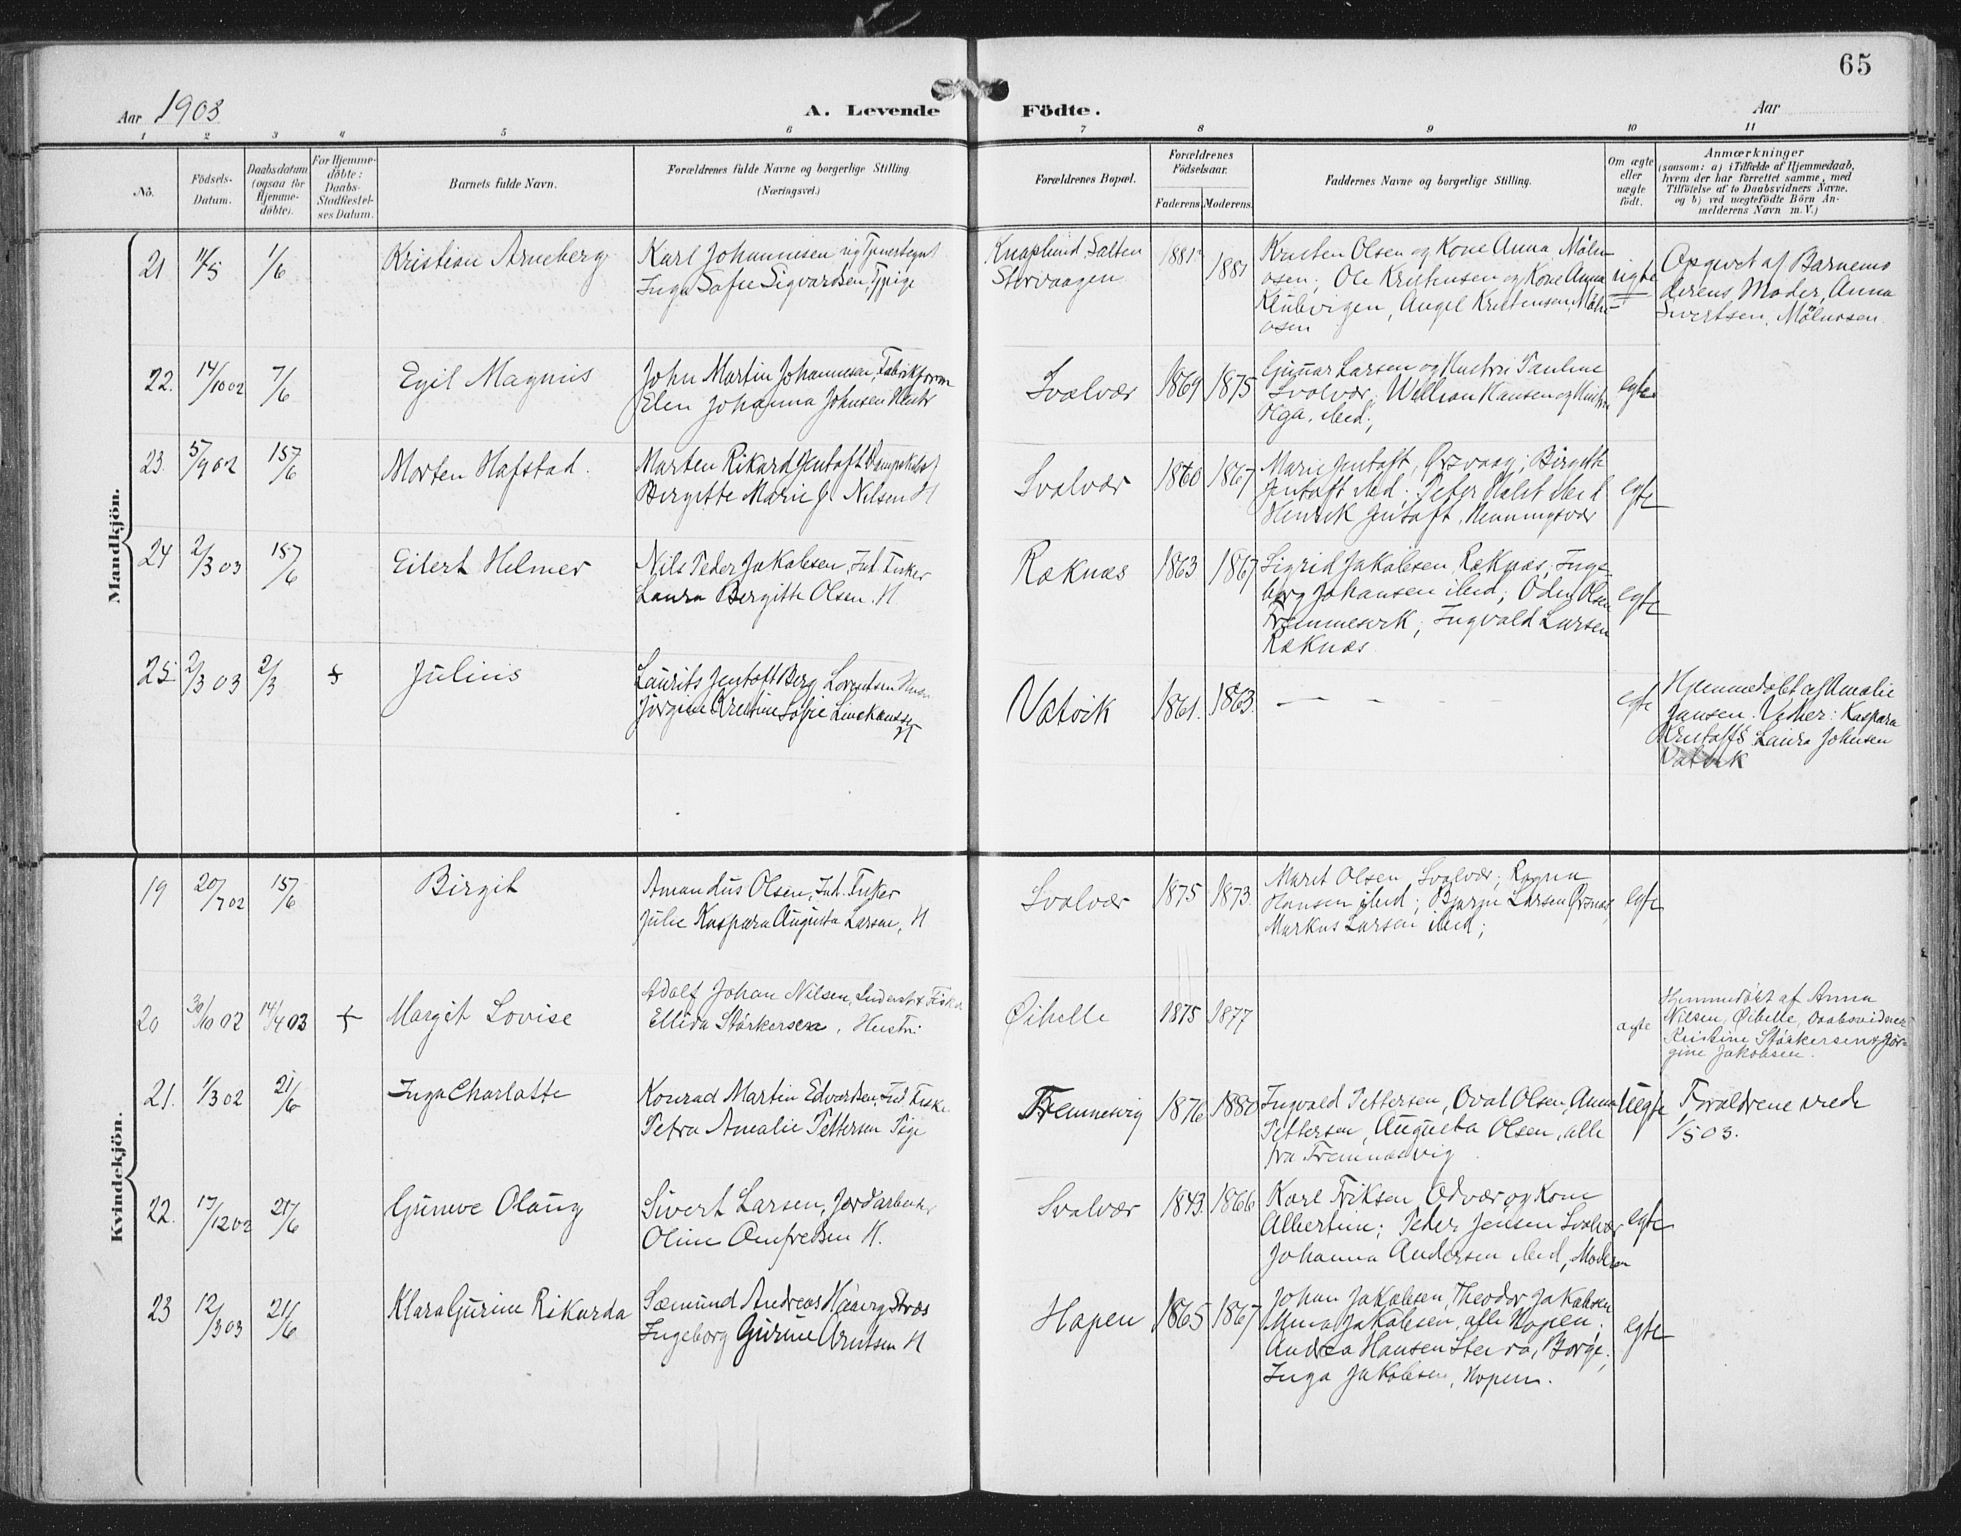 65
Aar 1903
A. Levende Födte.
Aar
1 2 3 4 5 6 7 8 9 10 11
No.
Födsels-Datum.
Daabsdatum (ogsaa for Hjemme-döbte).
For Hjemme-döbte: Daabs-Stadfæstel-ses Datum.
Barnets fulde Navn.
Forældrenes fulde Navne og borgerlige Stilling (Næringsvei.)
Forældrenes Bopæl.
Forældrenes Födselsaar.
Faderens. Moderens.
Faddernes Navne og borgerlige Stilling.
Om ægte eller uægte födt.
Anmærkninger
(saasom: a) i Tilfælde af Hjemmedaab,
hvem der har forrettet samme, med
Tilföielse af to Daabsvidners Navne.
og b) ved uægtefödte Börn An-
melderens Navn m. V.)
Mandkjön.
21 11/5 1/6 Kristian Arneberg
Karl Johannesen
Inga Sofie Sigvardsen, Pige
Knaplund Salten
Storvaagen
1881 1881
Kristen Olsen og Kone Anna Möln-
osen; Ole Kristensen og Kone Anna
Klubvigen, Angel Kristensen, Möln-
osen
uegte
Opgivet af Barnemo
derens Moder, Anna
Sivertsen, Mölnosen.
22. 14/10 02 7/6 Egil Magnus
John Martin Johannesen, Fabrikform
Elen Johanna Johnsen Hustr
Svolvær 1869 1875
Gunnar Larsen og Hustru Pauline
Svolvær; William Hansen og Hustru
Olga, ibid;
egte
23. 5/9 02 15/6 Morten Hafstad.
Morten Rikard Jentoft
Birgitte Marie J. Nilsen H
Svolvær 1860 1867
Marie Jentoft, Ørsvaag; Birgith
Jentoft ibid; Peter Holst ibid
Henrik Jentoft, Henningsvær
egte
24 2/3 03 15/6 Eilert Helmer
Nils Peder Jakobsen, Ind. Fisker
Laura Bergithe Olsen. H
Røknæs 1863 1867
Sigrid Jakobsen, Røknæs; Inge
borg Johansen ibid; Odin Olsen
Fremmesvik; Ingvald Larsen
Røknæs
egte
25 2/3 03 2/3 + Julius
Laurits Jentoft Berg Lorentsen
Jörgine Kristine Sofie
H
Vatvik 1861. 1863.
— — - - -
egte
Hjemmedöbt af Amalie
Jansen. Vidner: Kaspara
Kristoffs Laura Johnsen
Vatvik
Kvindekjön.
19 20/7 02 15/6 Birgit
Amandus Olsen, Ind. Fisker
Julie Kaspara Augusta Larsen, H
Svolvær 1875 1873.
Marit Olsen, Svolvær; Ragna
Hansen ibid; Bjarne Larsen Ørsnæs,
Markus Larsen ibid;
egte
20 30/10 02 14/4 03 + Margit Lovise
Adolf Johan Nilsen, Inderst & Fisker
Ellida Störkersen, Hustru
Øihelle 1875 1877
ægte
Hjemmedöbt af Anna
Nilsen, Øihelle, Daabsvidner
Kristine Störkersen & Jör-
gine Jakobsen.
21. 1/3 02 21/6 Inga Charlotte
Konrad Martin Edvardsen, Ind Fisker
Petra Amalie Pettersen Pige
Fremnesvig 1876 1880
Ingvald Pettersen, Ovat Olsen, Anna
Pettersen, Augusta Olsen, alle
fra Fremnesvig
Uegte
Forældrene viede
1/5 03.
22. 17/12 02 21/6 Guneve Olaug
Sivert Larsen, Jordarbeider
Oline Amfredsen H.
Svolvær 1843. 1866
Karl Eriksen, Odvær og Kone
Albertine; Peder Jensen Svolvær
Johanna Andersen ibid, Moderen
egte
23 12/3 03 21/6 Klara Gurine Rikarda
Sæmund Andreas
Ingeborg Gurine Arntsen H
Hopen 1865 1867
Johan Jakobsen, Theodor Jakobsen
Anna Jakobsen, alle Hopen;
Andrea Hansen Steira, Borge;
Inga Jakobsen, Hopen.
egte